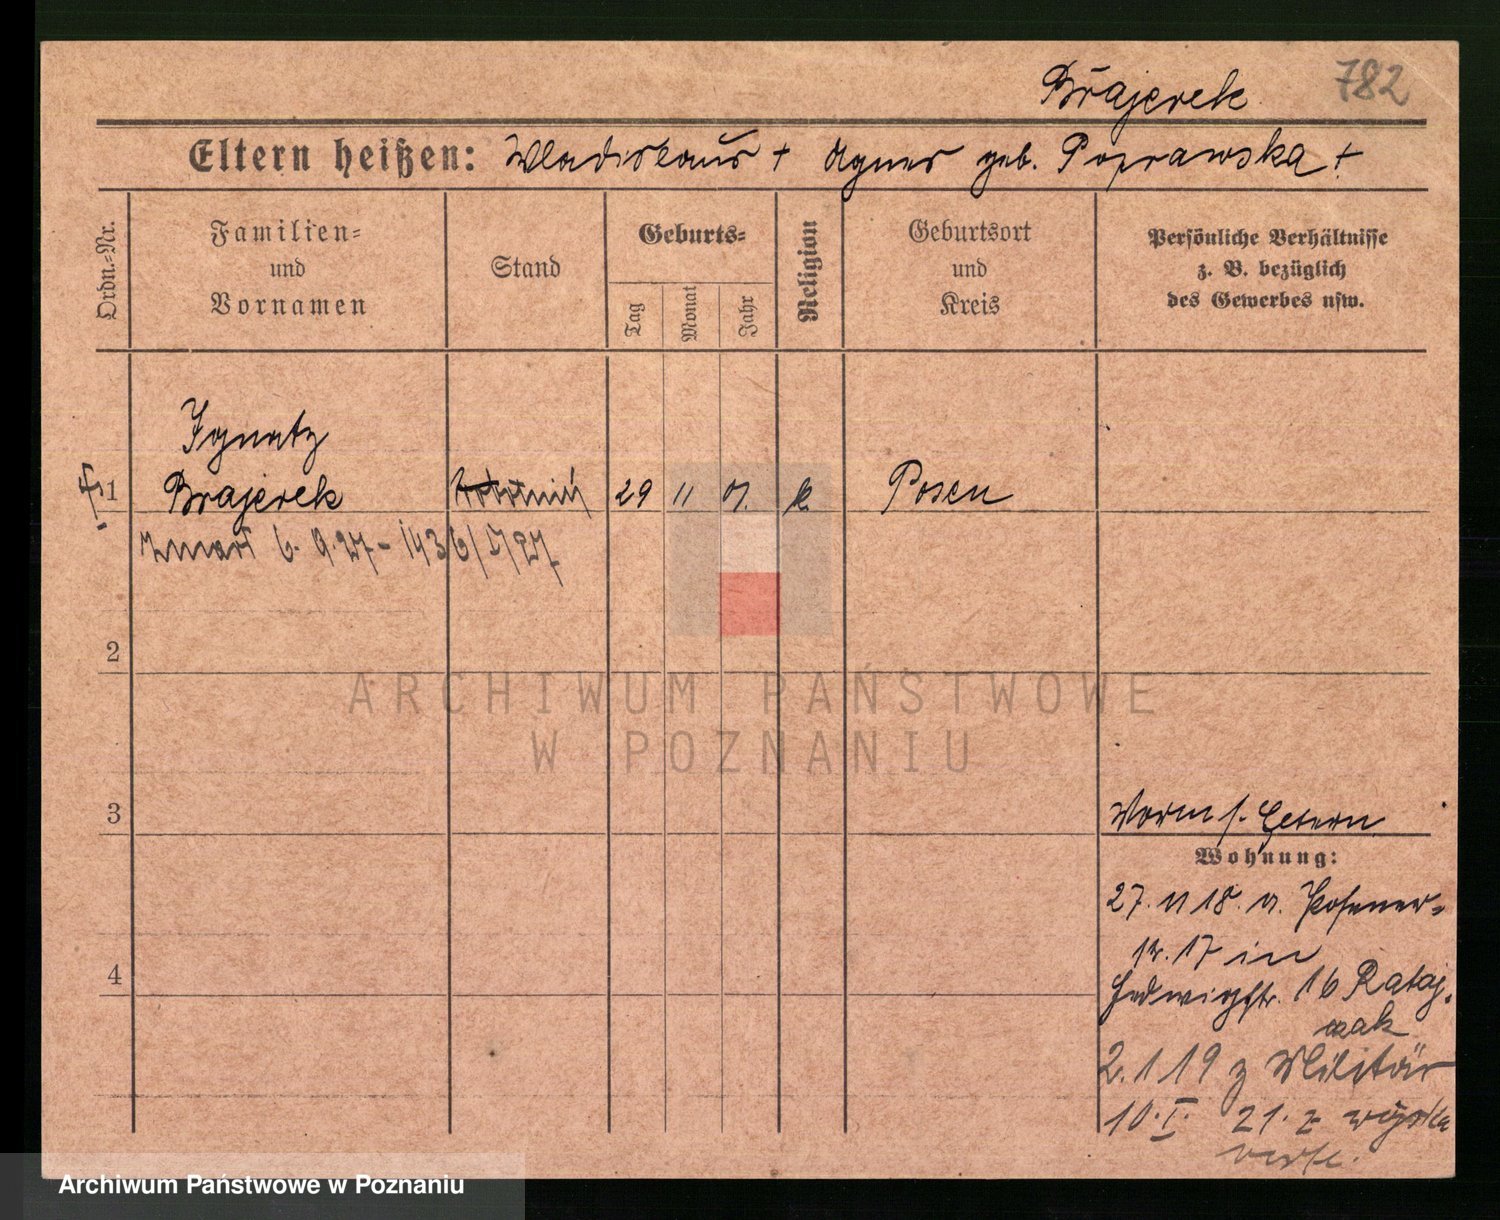 Brajerek 782
Eltern heißen: Wladislaus + Agnes geb. Poprawska +
Ordn.=Nr.
Familien=
und
Vornamen
Stand
Geburts=
Tag
Monat
Jahr
Religion
Geburtsort
und
Kreis
Persönliche Verhältnisse
z. B. bezüglich
des Gewerbes usw.
Ignatz
1 Brajerek 29 11 01. k. Posen
zmarł 6. 9. 27 - 1436/V/27
2
ARCHIWUM PAŃSTWOWE
W POZNANIU
3
Vorm s. Eltern
Wohnung:
27. 11 18. v. Posener=
str. 17 in
Hedwigstr. 16 Rataj=
czak
4
2. 1 19 z Militär
10. I. 21. z wojska
Archiwum Państwowe w Poznaniu